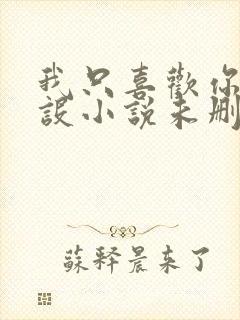 我只喜歡你
設小說未刪
蘇釋晨来了